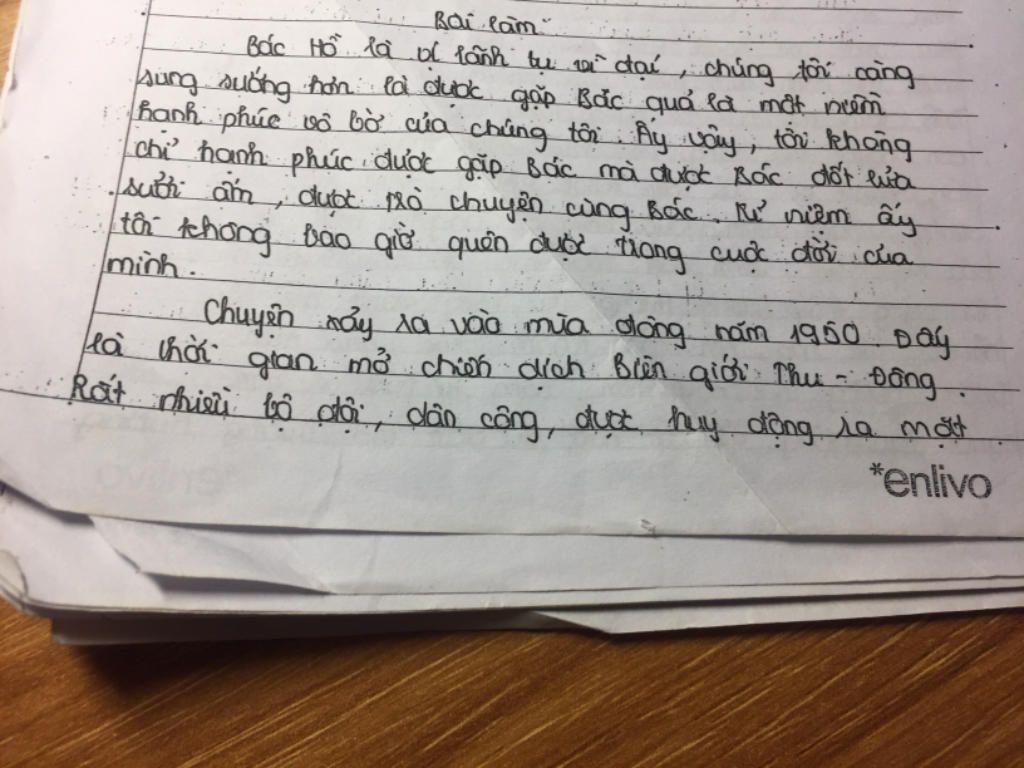 Bài làm
Bác Hồ là vị lãnh tụ vĩ đại, chúng tôi càng
sung sướng hơn là được gặp Bác quả là một niềm
hạnh phúc vô bờ của chúng tôi. Ấy vậy, tôi không
chỉ hạnh phúc được gặp Bác mà được Bác đốt lửa
sưởi ấm, được trò chuyện cùng Bác. Kỉ niệm ấy
tôi không bao giờ quên được trong cuộc đời của
mình.
Chuyện xảy ra vào mùa đông năm 1950. Đấy
là thời gian mở chiến dịch Biên giới Thu - Đông.
Rất nhiều bộ đội, dân công, được huy động ra mặt
*enlivo